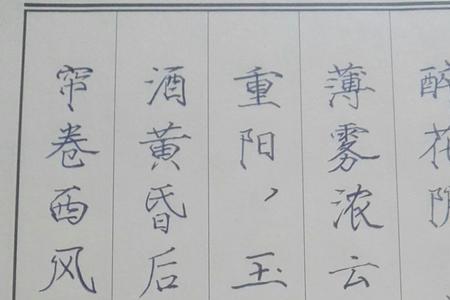 醉花阴
薄雾浓云
重阳，玉
酒黄昏后
帘卷西风